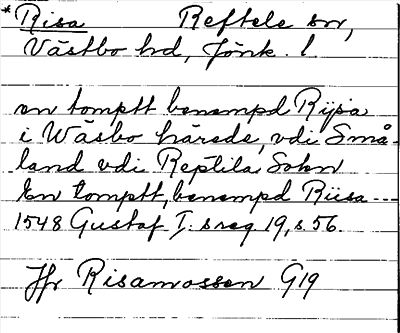 * Risa Reftele sn,
Västbo hd, Jönk. l.
en tomptt benempd Rijsa
i Wäsbo härede, vdi Små-
land vdi Reptila Sokn
En tomptt, benempd Riisa ---
1548 Gustaf I. s reg 19, s. 56.
Jfr Risamossen G19